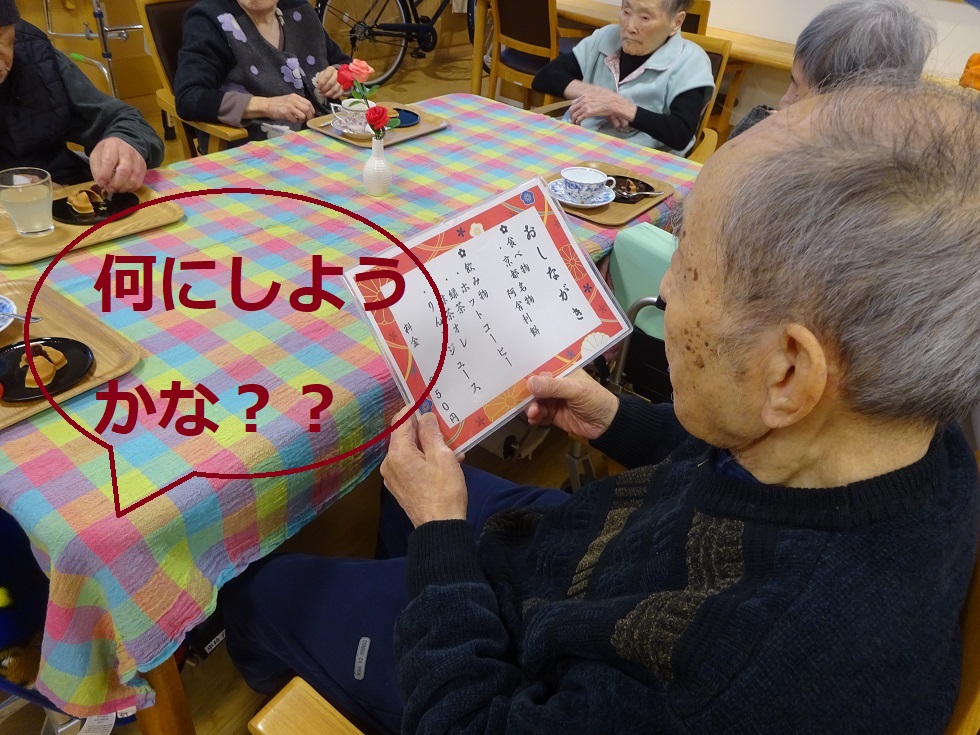 何にしよう
かな？？
おしながき
✿食べ物
・京都名物 阿舎利餅
✿飲み物
・ホットコーヒー
・緑茶オレ
料金 50円